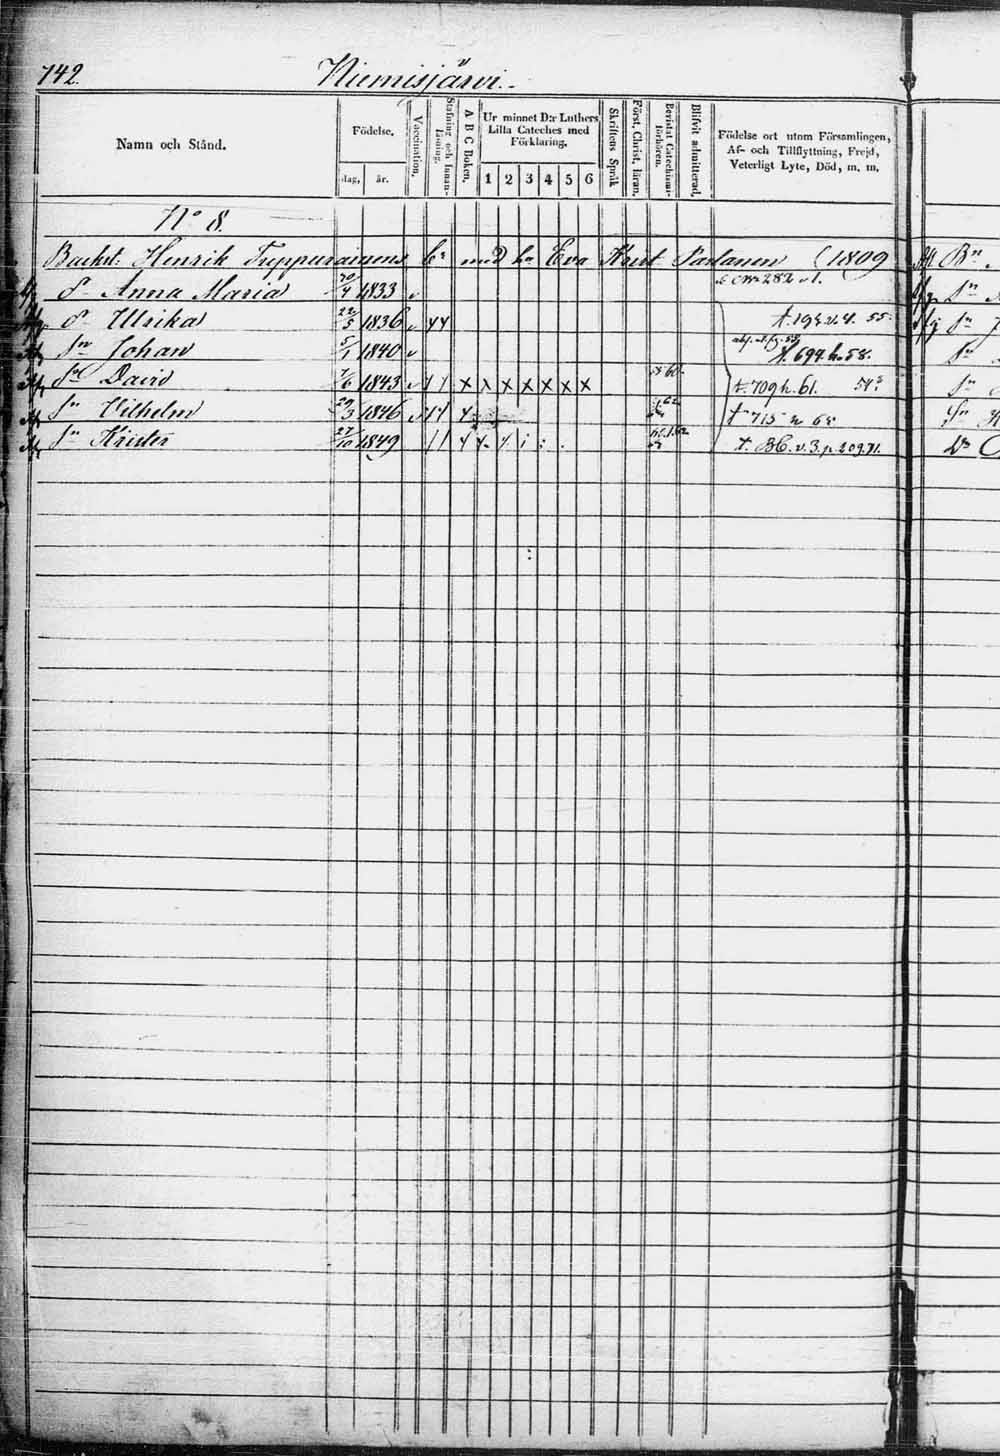 742.
Niemisjärvi.
Namn och Stånd.
Födelse.
dag,
år.
Vaccination.
Stafning och Innan-
läsning.
A B C Boken.
Ur minnet D:r Luthers
Lilla Cateches med
Förklaring.
1 2 3 4 5 6
Skriftens Språk
Först. Christ. läran.
Bevistat Catechismi-
förhören.
Blifvit admitterad.
Födelse ort utom Församlingen,
Af- och Tillflyttning, Frejd,
Veterligt Lyte, Död, m. m.
No 8.
Backst: Henrik Tuppurainens med Eva Krist Partanen (1809
Dr Anna Maria 1833 282
Dr Ulrika 22/5 1836 v. 4. 55.
Sn Johan 5/1 1840 t. 694 h. 58.
Sn David 7/6 1843 x x x x x x x 60. t. 709 h. 61.
Sn Vilhelm 29/3 1846 x 62 715
Sn Krister 27/10 1849 t. BC. v. 3. p. 209. 71.
Bn
Sn
Sn
Sn
Sn
Sn
Dr